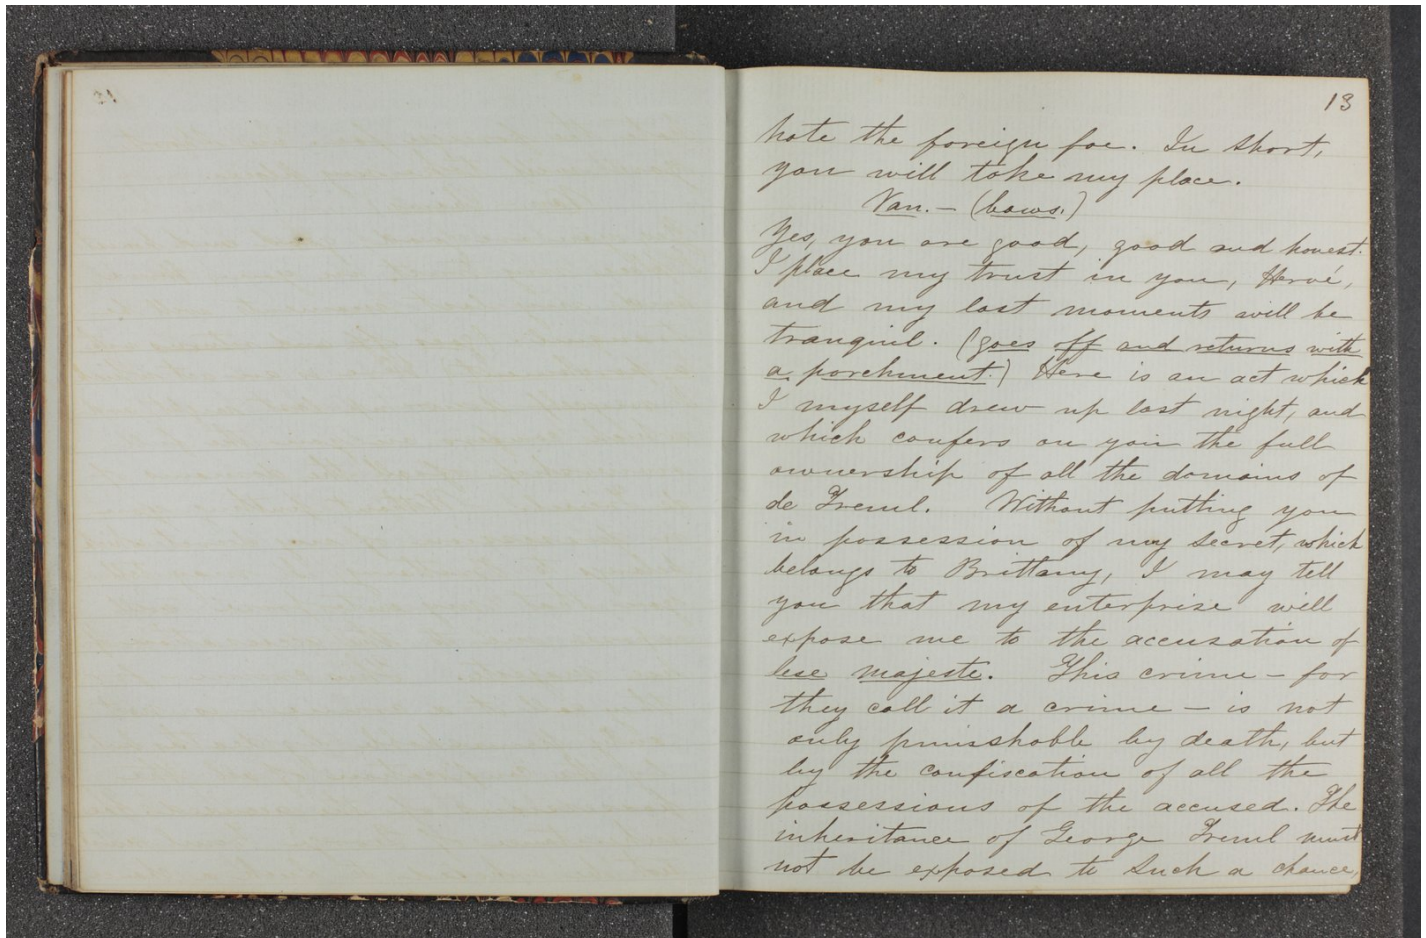 13
hate the foreign foe. In short,
you will take my place.
Van. — (bows.)
Yes, you are good, good and honest.
I place my trust in you, Hervé,
and my last moments will be
tranquil. (goes off and returns with
a parchment.) Here is an act which
I myself drew up last night, and
which confers on you the full
ownership of all the domains of
de Treml. Without putting you
in possession of my secret, which
belongs to Brittany, I may tell
you that my enterprise will
expose me to the accusation of
lese majeste. This crime — for
they call it a crime — is not
only punishable by death, but
by the confiscation of all the
possessions of the accused. The
inheritance of George Treml must
not be exposed to such a chance,